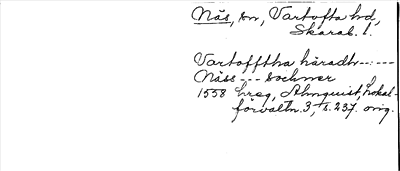 Näs, sn, Vartofta hd,
Skarab. l.
Vartofftha häradh------
Näss --- Sochner
1558 hreg, Almquist, Lokal-
förvaltn. 3, s. 237. orig.